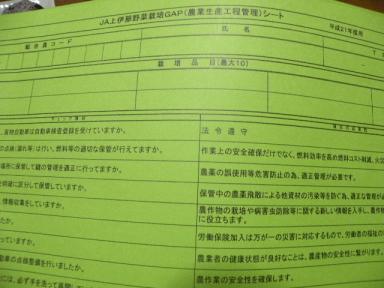 JA上伊那野菜栽培GAP(農業生産工程管理)シート
平成21年度用
組合員コード
氏名
栽培品目(最大10)
チェック項目
、貨物自動車は自動車検査登録を受けていますか。
法令遵守
の点検(漏れ等)は行い、燃料等の適切な保管が行えてますか。
作業上の安全確保だけでなく、燃料効率を高め燃料コスト削減、火災
場所に保管して鍵の管理を適正に行ってますか。
農薬の誤使用等危害防止の為、適正管理が必要です。
明確に区分して保管していますか。
保管中の農薬飛散による他資材の汚染等を防ぐ為、適正な管理が必
、情報収集をしていますか。
農作物の栽培や病害虫防除等に関する新しい情報を入手し、農作物
に役立ちます。
たか。
労働保険加入は万が一の災害に対応するもので、労働者の福祉の
っていますか。
農業者の健康状態が良好なことは、農産物の安全性に繋がります。
動車の点検整備を行いましたか。
農作業の安全性を確保します。
には、必ず手を洗って